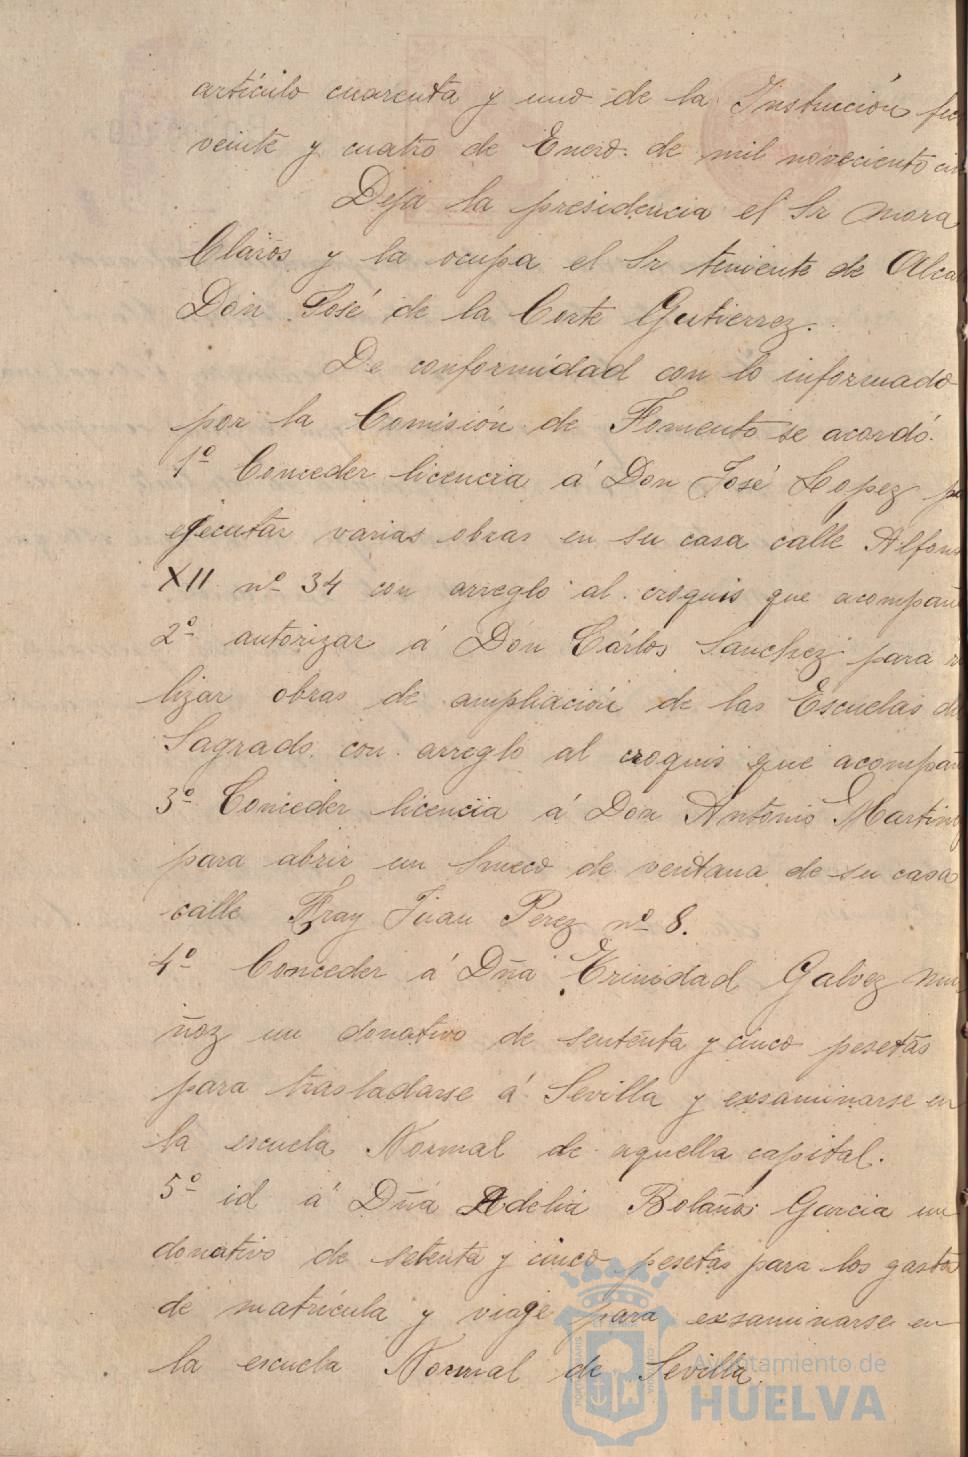 artículo cuarenta y uno de la Instrucción fec
veinte y cuatro de Enero de mil noveciento cin
Deja la presidencia el Sr Mora
Claros y la ocupa el Sr teniente de Alca
Don José de la Corte Gutierrez.
De conformidad con lo informado
por la Comisión de Fomento se acordó.
1º Conceder licencia á Don José Lopez pa
ejecutar varias obras en su casa calle Alfons
XII nº 34 con arreglo al croquis que acompañ
2º autorizar á Don Cárlos Sanchez para re
lizar obras de ampliación de las Escuelas del
Sagrado con arreglo al croquis que acompañ
3º Conceder licencia á Don Antonio Martine
para abrir un hueco de ventana de su casa
calle Fray Juan Perez nº 8.
4º Conceder á Dña Trinidad Galvez mu
ñoz un donativo de sententa y cinco pesetas
para trasladarse á Sevilla y exsaminarse en
la escuela Normal de aquella capital.
5º id á Dñá Adelia Bolaños Garcia un
donativo de setenta y cinco pesetas para los gasto
de matrícula y viaje para exsaminarse en
la escuela Normal de Sevilla.
Ayuntamiento de
HUELVA